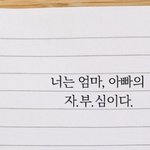 너는 엄마, 아빠의
자.부.심이다.